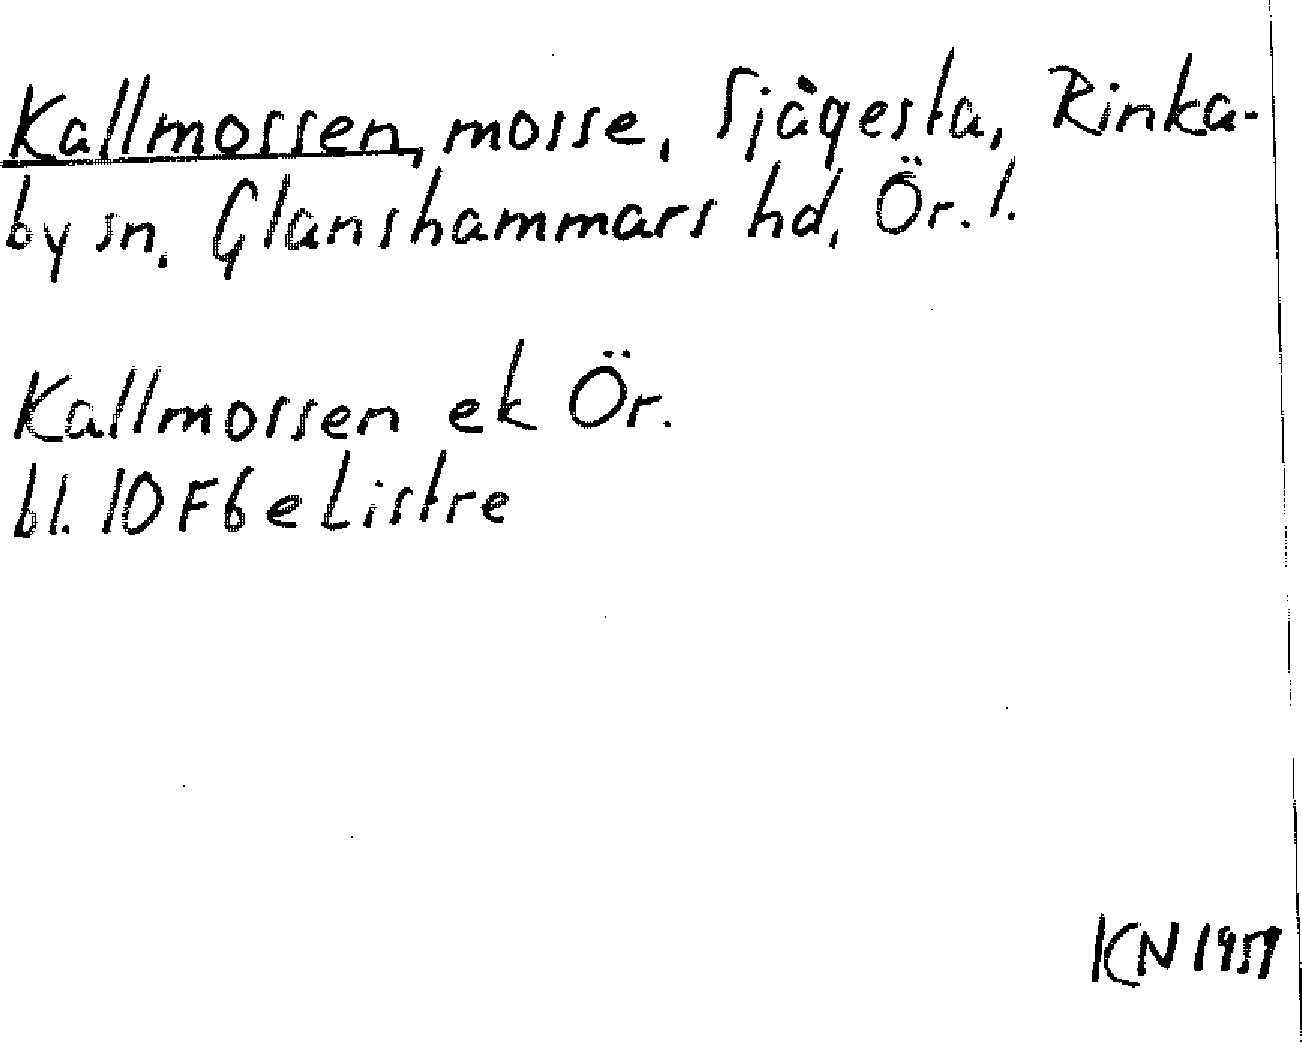 Kallmossen, mosse, Sjägesta, Rinka-
by sn. Glanshammars hd, Ör. l.
Kallmossen ek Ör.
bl. 10F6e Listre
KN